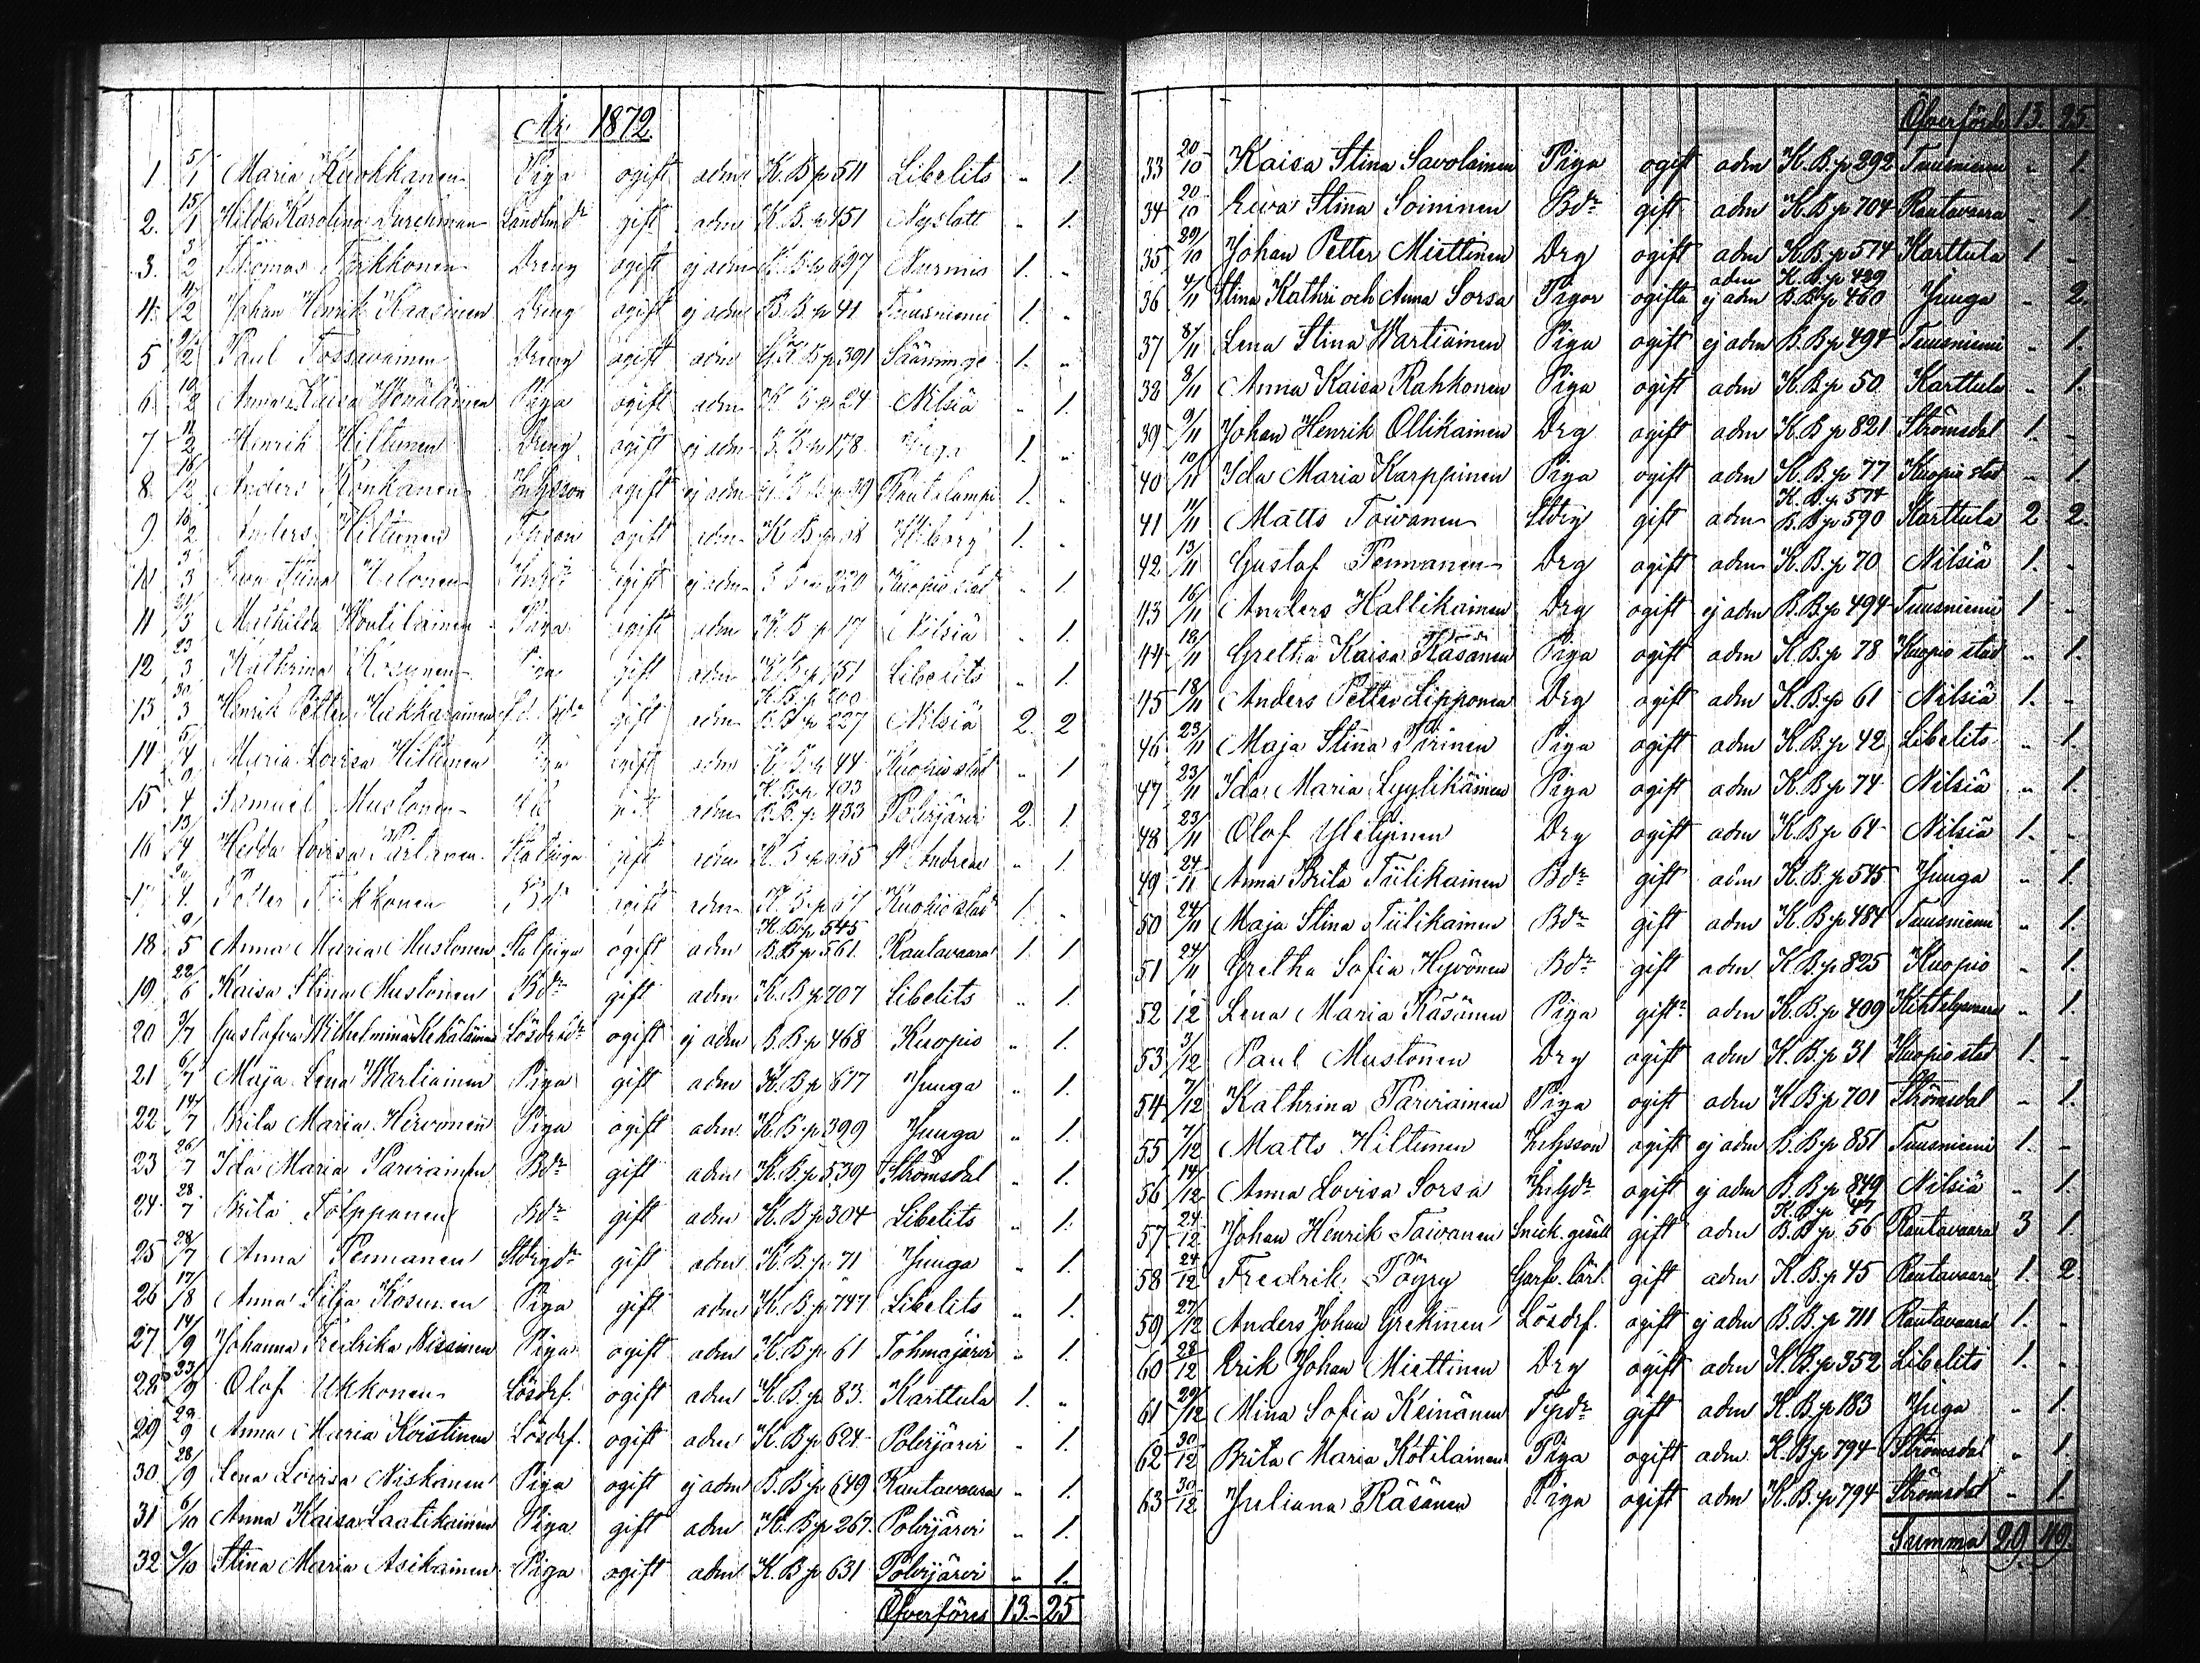 År 1872.
1. 5/1 Maria Kuokkanen Piga ogift adm K.B.p 511 Libelits " 1.
2. 15/1 Hilda Karolina gift adm K.B.p 451 Nyslott " 1.
3. 3/2 Thomas Dreng ogift ej adm 697 Nurmis 1. "
4. /2 Johan Henrik Dreng ogift ej adm B.B.p 41 Tuusniemi 1. "
5 /2 Paul Tossavainen Dreng ogift adm K.B.p 391 Sääminge 1. "
6. 10/2 Anna Kaisa Piga ogift adm K.B.p 24 Nilsiä " 1.
7. 11/2 Henrik Hiltunen Dreng ogift ej adm 178 1. "
8. 16/2 Anders ogift ej adm 39 Rautalampi 1. "
9. 16/2 Anders Hiltunen ogift adm K.B.p 1. "
10 /3 Stina ogift ej adm 220 Kuopio stad " 1.
11 21/3 Mathilda Piga ogift adm K.B.p 17 Nilsiä " 1.
12 23/3 Kathrina Kosunen gift adm Libelits " 1.
13 30/3 Henrik Petter gift adm 227 Nilsiä 2. 2
14 5/4 Maria Lovisa Hiltunen ogift adm 44 Kuopio stad " 1
15. /4 Samuel Mustonen adm K.B.p 403 B.B.p 433 Polvijärvi 2. 1.
16 13/4 Hedda Lovisa adm St Andreae " 1
17 /4. Petter adm Kuopio stad 1. "
18. 9/5 Anna Maria Mustonen ogift adm K.B.p 545 B.B.p 561 Rautavaara 1. 1
19. 22/6 Kaisa Stina Mustonen Bdr gift adm K.B.p 707 Libelits " 1.
20 /7 Gustafva Wilhelmina ogift ej adm B.B.p 468 Kuopio " 1.
21 6/7 Maja Lena Wartiainen Piga gift adm K.B.p 677 Juuga " 1.
22 14/7 Brita Maria Hirvonen Piga ogift adm K.B.p 399 Juuga " 1.
23 26/7 Ida Maria Parviainen Bdr gift adm K.B.p 539 Strömsdal " 1.
24. 28/7 Brita Tolppanen Bdr gift adm K.B.p 304 Libelits " 1.
25 28/7 Anna Pennanen gift adm K.B.p 71 Juuga " 1.
26 17/8 Anna Silja Kosunen Piga gift adm K.B.p 747 Libelits " 1.
27 14/9 Johanna Fredrika Nissinen Piga ogift adm K.B.p 61 Tohmajärvi " 1.
28 23/9 Olof Ukkonen Lösdrf. ogift adm K.B.p 83. Karttula 1. "
29 29/9 Anna Maria Koistinen Lösdrf. ogift adm K.B.p 624 Polvijärvi " 1.
30. 28/9 Lena Lovisa Niskanen Piga ogift ej adm B.B.p 649 Rautavaara " 1.
31 6/10 Anna Kaisa Laatikainen Piga gift adm K.B.p 267. Polvijärvi " 1.
32 9/10 Stina Maria Asikainen Piga ogift adm K.B.p 631 Polvijärvi " 1.
Öfverföres 13. 25
Öfverförde 13. 25.
33 20/10 Kaisa Stina Savolainen Piga ogift adm K.B.p 292 Tuusniemi " 1.
34 20/10 Eeva Stina Soininen Bdr gift adm K.B.p 704 Rautavaara " 1
35 29/10 Johan Petter Miettinen Drg ogift adm K.B.p 574 Karttula 1 "
36 4/11 Stina Kathri och Anna Sorsa Pigor ogifta adm ej adm K.B.p 439 B.B.p 460 Juuga " 2.
37 8/11 Lena Stina Wartiainen Piga ogift ej adm B.B.p 494 Tuusniemi " 1.
38 8/11 Anna Kaisa Rahkonen Piga ogift adm K.B.p 50. Karttula " 1.
39 9/11 Johan Henrik Ollikainen Drg ogift adm K.B.p 821 Strömsdal 1. "
40 10/11 Ida Maria Karppinen Piga ogift adm K.B.p 77 Kuopio stad " 1.
41 11/11 Matts Toivanen Stdrg gift adm K.B.p 574 B.B.p 590 Karttula 2 2.
42 13/11 Gustaf Pennanen Drg ogift adm K.B.p 70 Nilsiä 1. "
43 16/11 Anders Hallikainen Drg ogift ej adm B.B.p 494 Tuusniemi 1 "
44 18/11 Gretha Kaisa Räsänen Piga ogift adm K.B.p 78 Kuopio stad " 1.
45 18/11 Anders Petter Lipponen Drg ogift adm K.B.p 61 Nilsiä 1. "
46. 23/11 Maja Stina Piirinen Piga ogift adm K.B.p 42 Libelits " 1.
47 23/11 Ida Maria Lyylikäinen Piga ogift adm K.B.p 74 Nilsiä " 1.
48 23/11 Olof Drg ogift adm K.B.p 64 Nilsiä 1. "
49 24/11 Anna Brita Tiilikainen Bdr gift adm K.B.p 545 Juuga " 1.
50 24/11 Maja Stina Tiilikainen Bdr gift adm K.B.p 484 Tuusniemi " 1.
51 24/11 Gretha Sofia Hyvönen Bdr gift adm K.B.p 825 Kuopio " 1.
52 1/12 Lena Maria Räsänen Piga gift adm K.B.p 409 Kihtelysvaara " 1.
53 3/12 Paul Mustonen Drg ogift adm K.B.p 31 Kuopio stad 1. "
54 7/12 Kathrina Parviainen Piga ogift adm K.B.p 701 Strömsdal " 1.
55 7/12 Matts Hiltunen Inhysson ogift ej adm B.B.p 851 Tuusniemi 1. "
56 14/12 Anna Lovisa Sorsa Inhdr ogift ej adm B.B.p 849 Nilsiä " 1.
57 24/12 Johan Henrik Toivanen Snick. gesäll gift adm K.B.p 47 B.B.p 56 Rautavaara 3 1.
58 24/12 Fredrik Pöyry Garfv. lärl. gift adm K.B.p 45 Rautavaara 1. 2.
59 27/12 Anders Johan Grekinen Lösdrf. ogift ej adm B.B.p 711 Rautavaara 1. "
60 28/12 Erik Johan Miettinen Drg ogift adm K.B.p 352 Libelits 1. "
61 29/12 Mina Sofia Keinänen gift adm K.B.p 183 Juga " 1.
62 30/12 Brita Maria Kotilainen Piga ogift adm K.B.p 794 Strömsdal " 1.
63 30/12 Juliana Räsänen Piga ogift adm K.B.p 794 Strömsdal " 1.
Summa 29. 49.